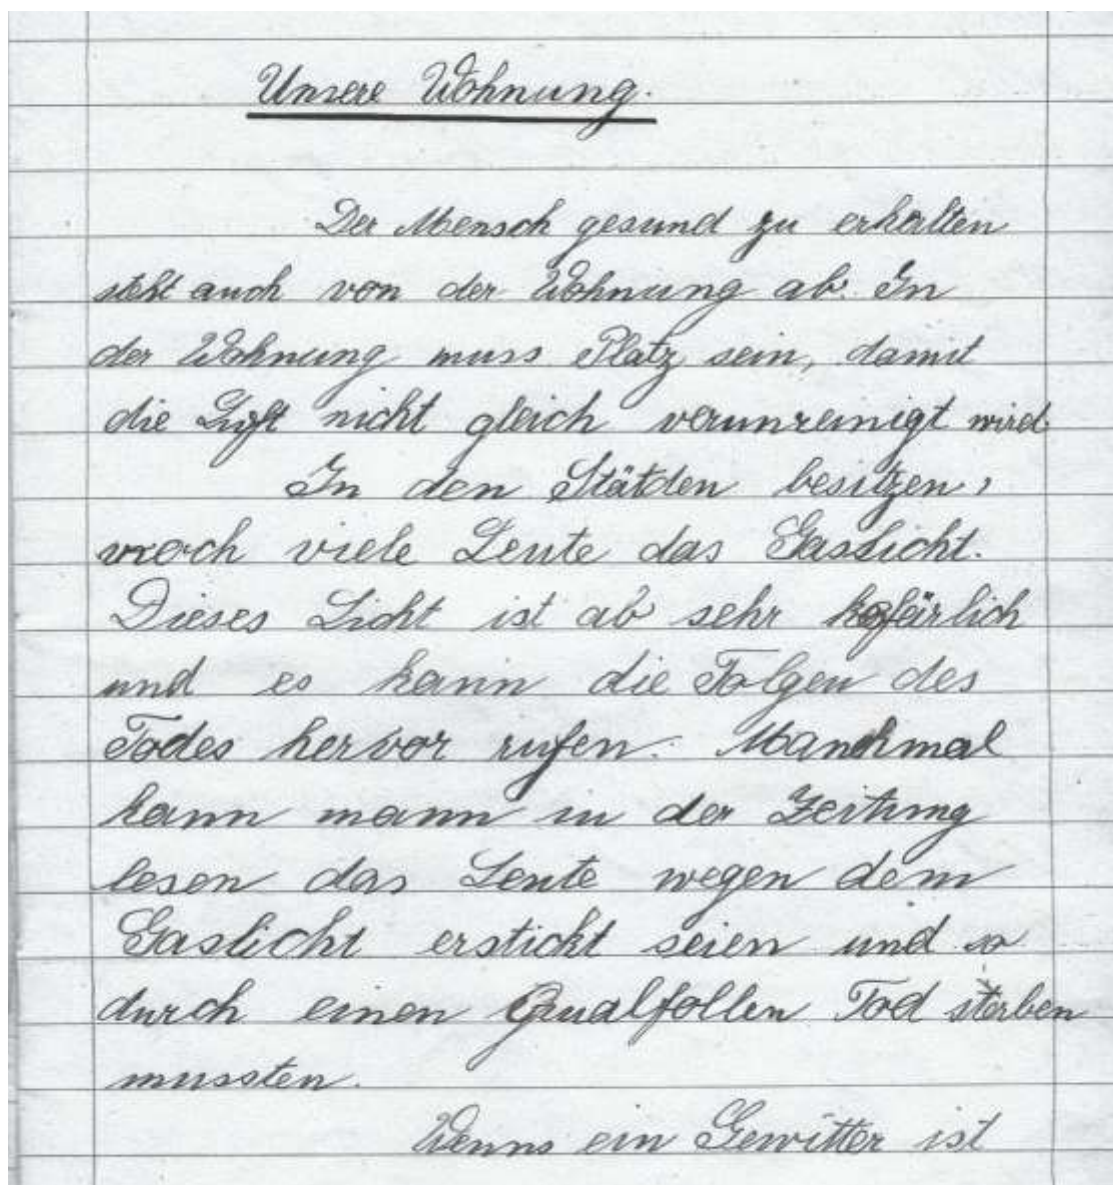 Unsere Wohnung.
Der Mensch gesund zu erhalten
steht auch von der Wohnung ab. In
der Wohnung muss Platz sein, damit
die Luft nicht gleich verunreinigt wird.
In den Stätden besitzen,
noch viele Leute das Gaslicht.
Dieses Licht ist ab sehr gefärlich
und es kann die Folgen des
Todes hervor rufen. Manchmal
kann mann in der Zeitung
lesen das Leute wegen dem
Gaslicht erstickt seien und so
durch einen Qualfollen Tod sterben
mussten.
Wenns ein Gewitter ist